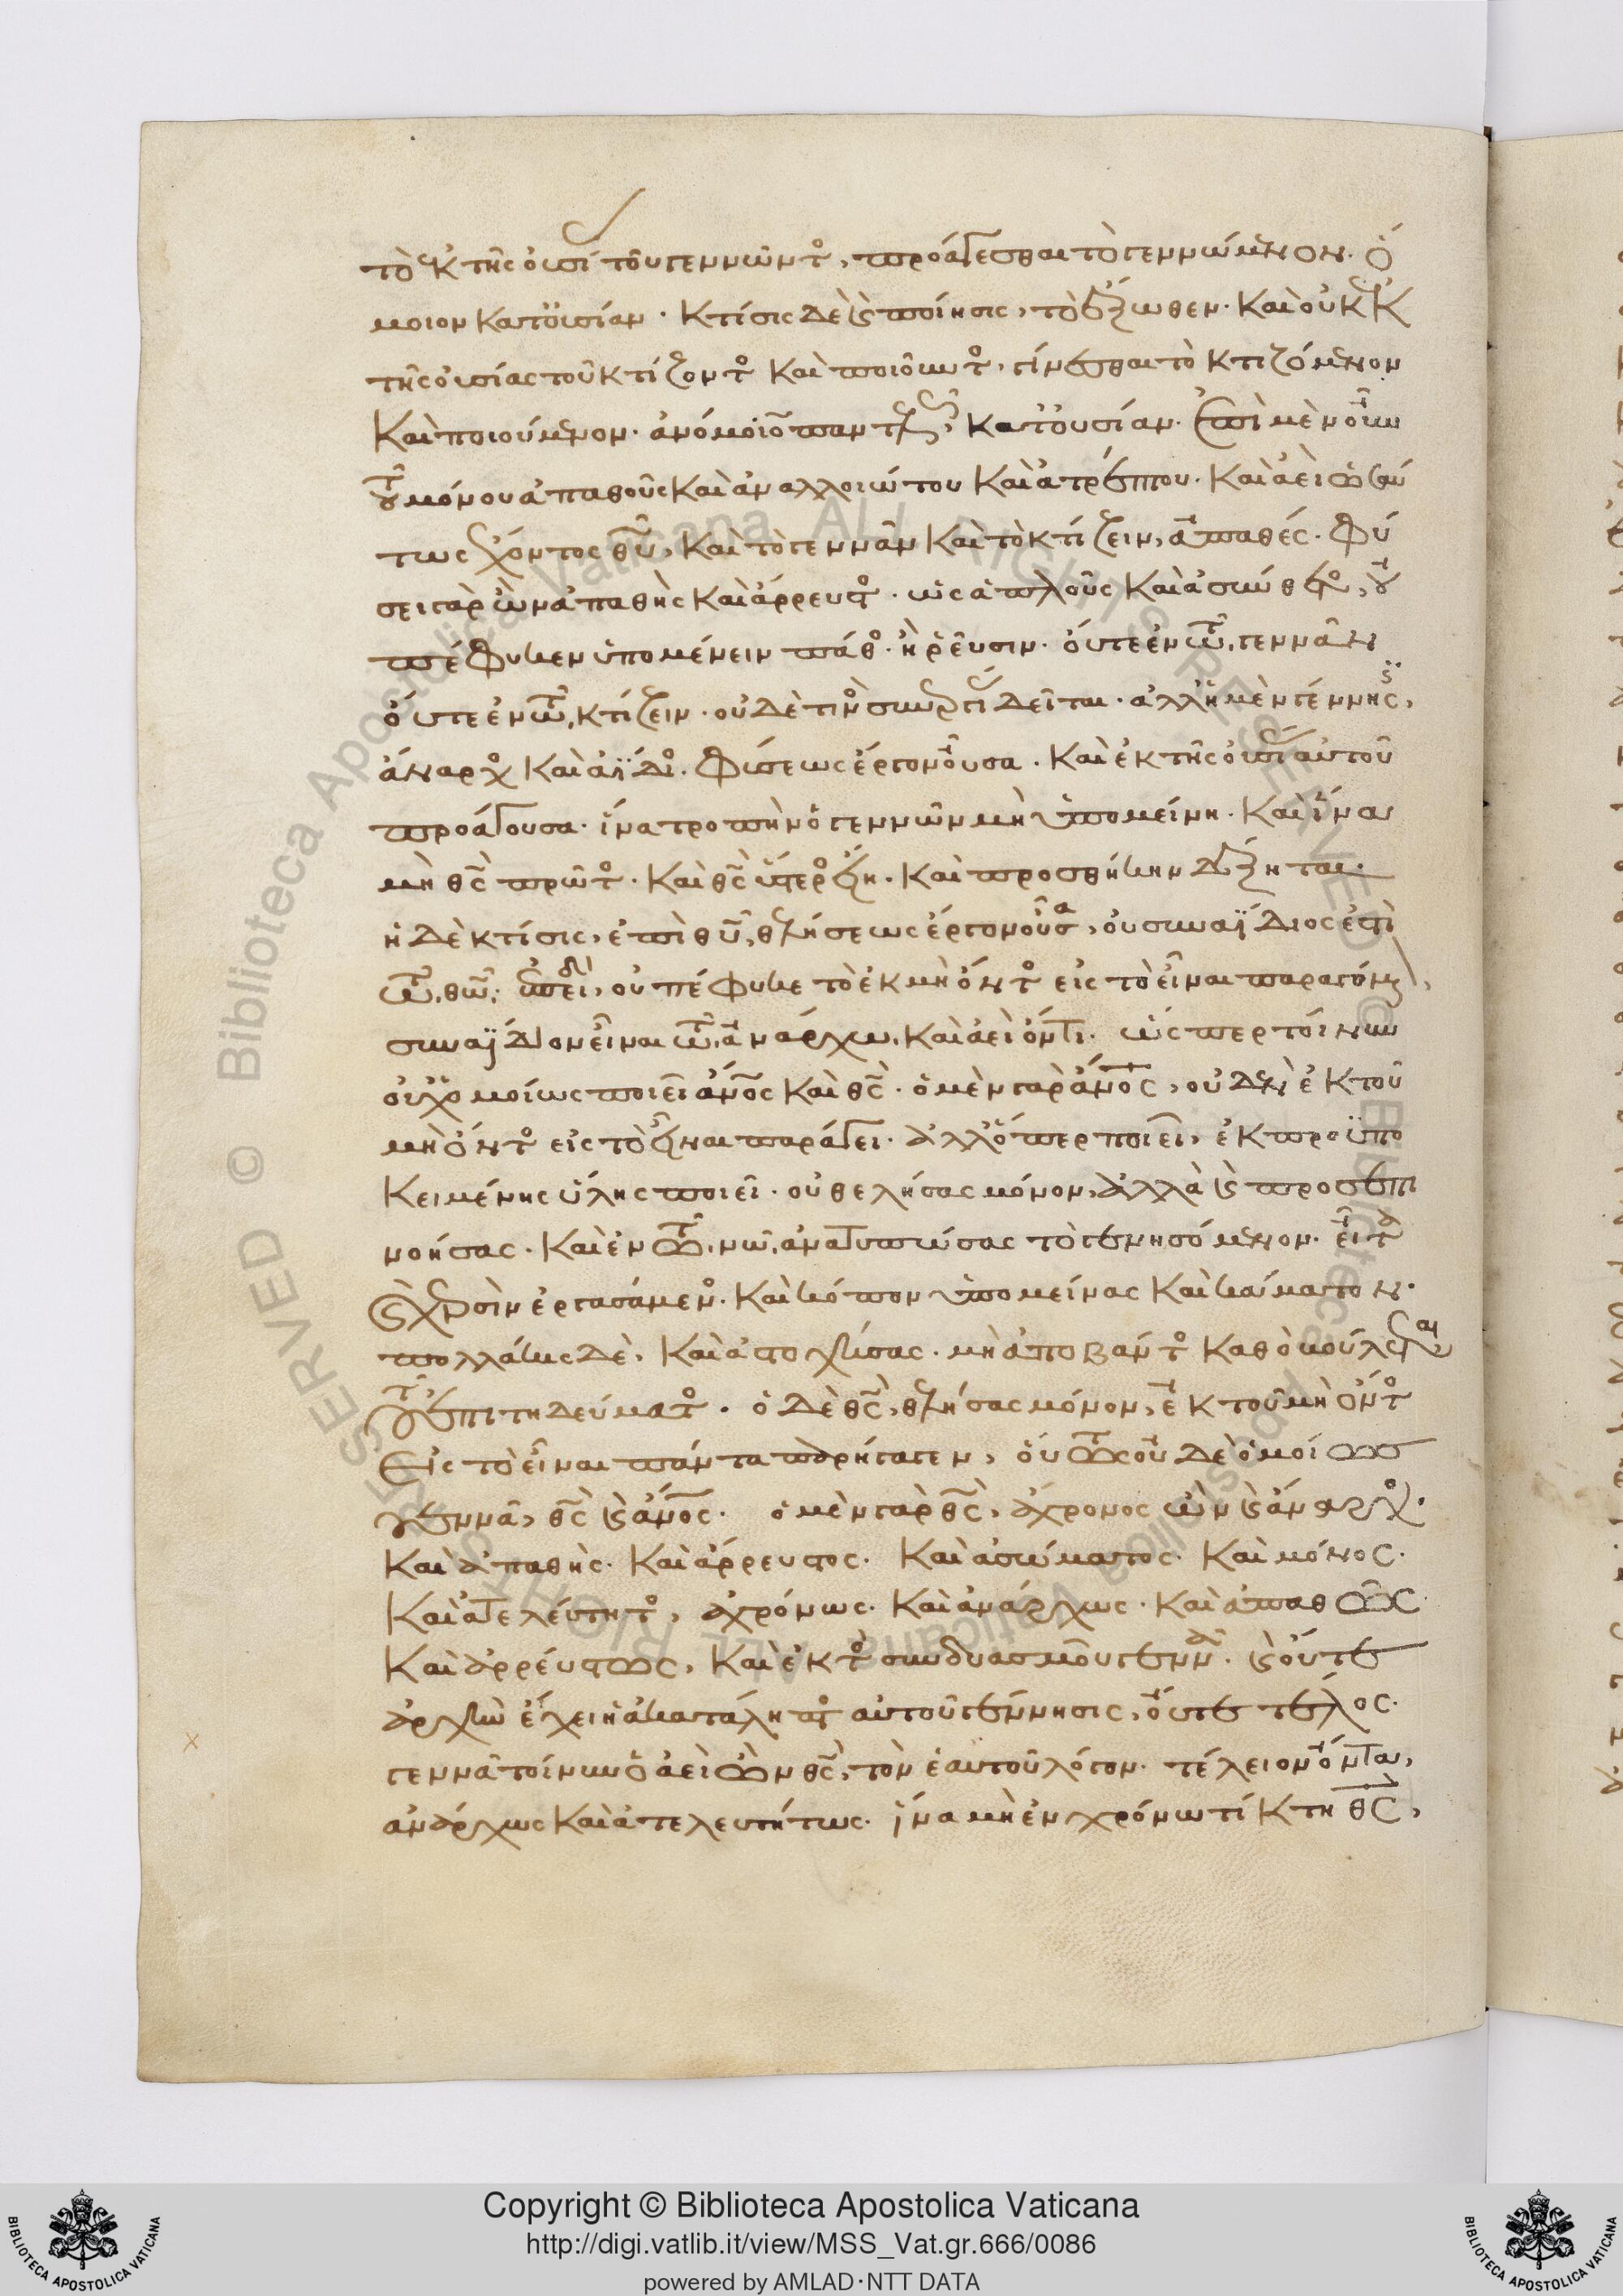 τὸ ἐκ τῆς οὐσίας τοῦ γεννῶντος, προάγεσθαι τὸ γεννώμενον. ὅ
μοιον κατ' οὐσίαν. κτίσις δὲ καὶ ποίησις, τὸ ἔξωθεν. καὶ οὐκ ἐκ
τῆς οὐσίας τοῦ κτίζοντος καὶ ποιοῦντος, γίνεσθαι τὸ κτιζόμενον
καὶ ποιούμενον. ἀνόμοιον παντελῶς κατ' οὐσίαν. ἐπὶ μὲν οὖν
τοῦ μόνου ἀπαθοῦς καὶ ἀναλλοιώτου καὶ ἀτρέπτου. καὶ ἀεὶ ὡσαύ
τως ἔχοντος θῦ, καὶ τὸ γεννᾶν καὶ τὸ κτίζειν, ἀπαθές. φύ
σει γὰρ ὢν ἀπαθὴς καὶ ἄρρευστος. ὡς ἁπλοῦς καὶ ἀσύνθετος, οὐ
πέφυκεν ὑπομένειν πάθος. ἢ ῥεῦσιν. οὔτε ἐν τῷ γεννᾶν
οὔτε ἐν τῷ κτίζειν. οὐδέ τινος συνεργίας δεῖται. ἀλλ' ἡ μὲν γέννησις,
ἄναρχος καὶ ἀΐδιος. φύσεως ἔργον οὖσα. καὶ ἐκ τῆς οὐσίας αὐτοῦ
προάγουσα. ἵνα τροπὴν ὁ γεννῶν μὴ ὑπομείνη. καὶ ἵνα
μὴ θς πρῶτος. καὶ θς ὕστερος εἴη. καὶ προσθήκην δέξηται.
ἡ δὲ κτίσις, ἐπὶ θῦ, θελήσεως ἔργον οὖσα, οὐ συναΐδιος ἐστὶ
τῷ θῶ. ἐπειδὴ, οὐ πέφυκε τὸ ἐκ μὴ ὄντος εἰς τὸ εἶναι παραγόμενον,
συναΐδιον εἶναι τῷ ἀνάρχω, καὶ ἀεὶ ὄντι. ὥσπερ τοίνυν
οὐχ' ὁμοίως ποιεῖ ἄνος καὶ θς. ὁ μὲν γὰρ ἄνος, οὐδὲν ἐκ τοῦ
μὴ ὄντος εἰς τὸ εἶναι παράγει. ἀλλ' ὅπερ ποιεῖ, ἐκ προϋπο
κειμένης ὕλης ποιεῖ. οὐ θελήσας μόνον, ἀλλὰ καὶ προεπι
νοήσας. καὶ ἐν τῷ νῶ, ἀνατυπώσας τὸ γενησόμενον. εἶτα
καὶ χερσὶν ἐργασάμενος. καὶ κόπον ὑπομείνας καὶ κάματον.
πολλάκις δὲ, καὶ ἀστοχήσας. μὴ ἀποβάντος καθὸ βούλεται
τοῦ ἐπιτηδεύματος. ὁ δὲ θς, θελήσας μόνον, ἐκ τοῦ μὴ ὄντος
εἰς τὸ εἶναι πάντα παρήγαγεν, οὕτως οὐδὲ ὁμοίως
γεννᾶ, θς καὶ ἄνος. ὁ μὲν γὰρ θς, ἄχρονος ὢν καὶ ἄναρχος.
καὶ ἀπαθής. καὶ ἄρρευστος. καὶ ἀσώματος. καὶ μόνος.
καὶ ἀτελεύτητος, ἀχρόνως. καὶ ἀνάρχως. καὶ ἀπαθῶς.
καὶ ἀρρεύστως, καὶ ἐκτὸς συνδυασμοῦ γεννᾶ. καὶ οὔτε
ἀρχὴν ἔχει ἡ ἀκατάληπτος αὐτοῦ γέννησις, οὔτε τέλος.
γεννᾶ τοίνυν ὁ ἀεὶ ὢν θς, τὸν ἑαυτοῦ λόγον. τέλειον ὄντα,
ἀνάρχως καὶ ἀτελευτήτως. ἵνα μὴ ἐν χρόνω τίκτη θς,
Copyright © Biblioteca Apostolica Vaticana
http://digi.vatlib.it/view/MSS_Vat.gr.666/0086
powered by AMLAD·NTT DATA